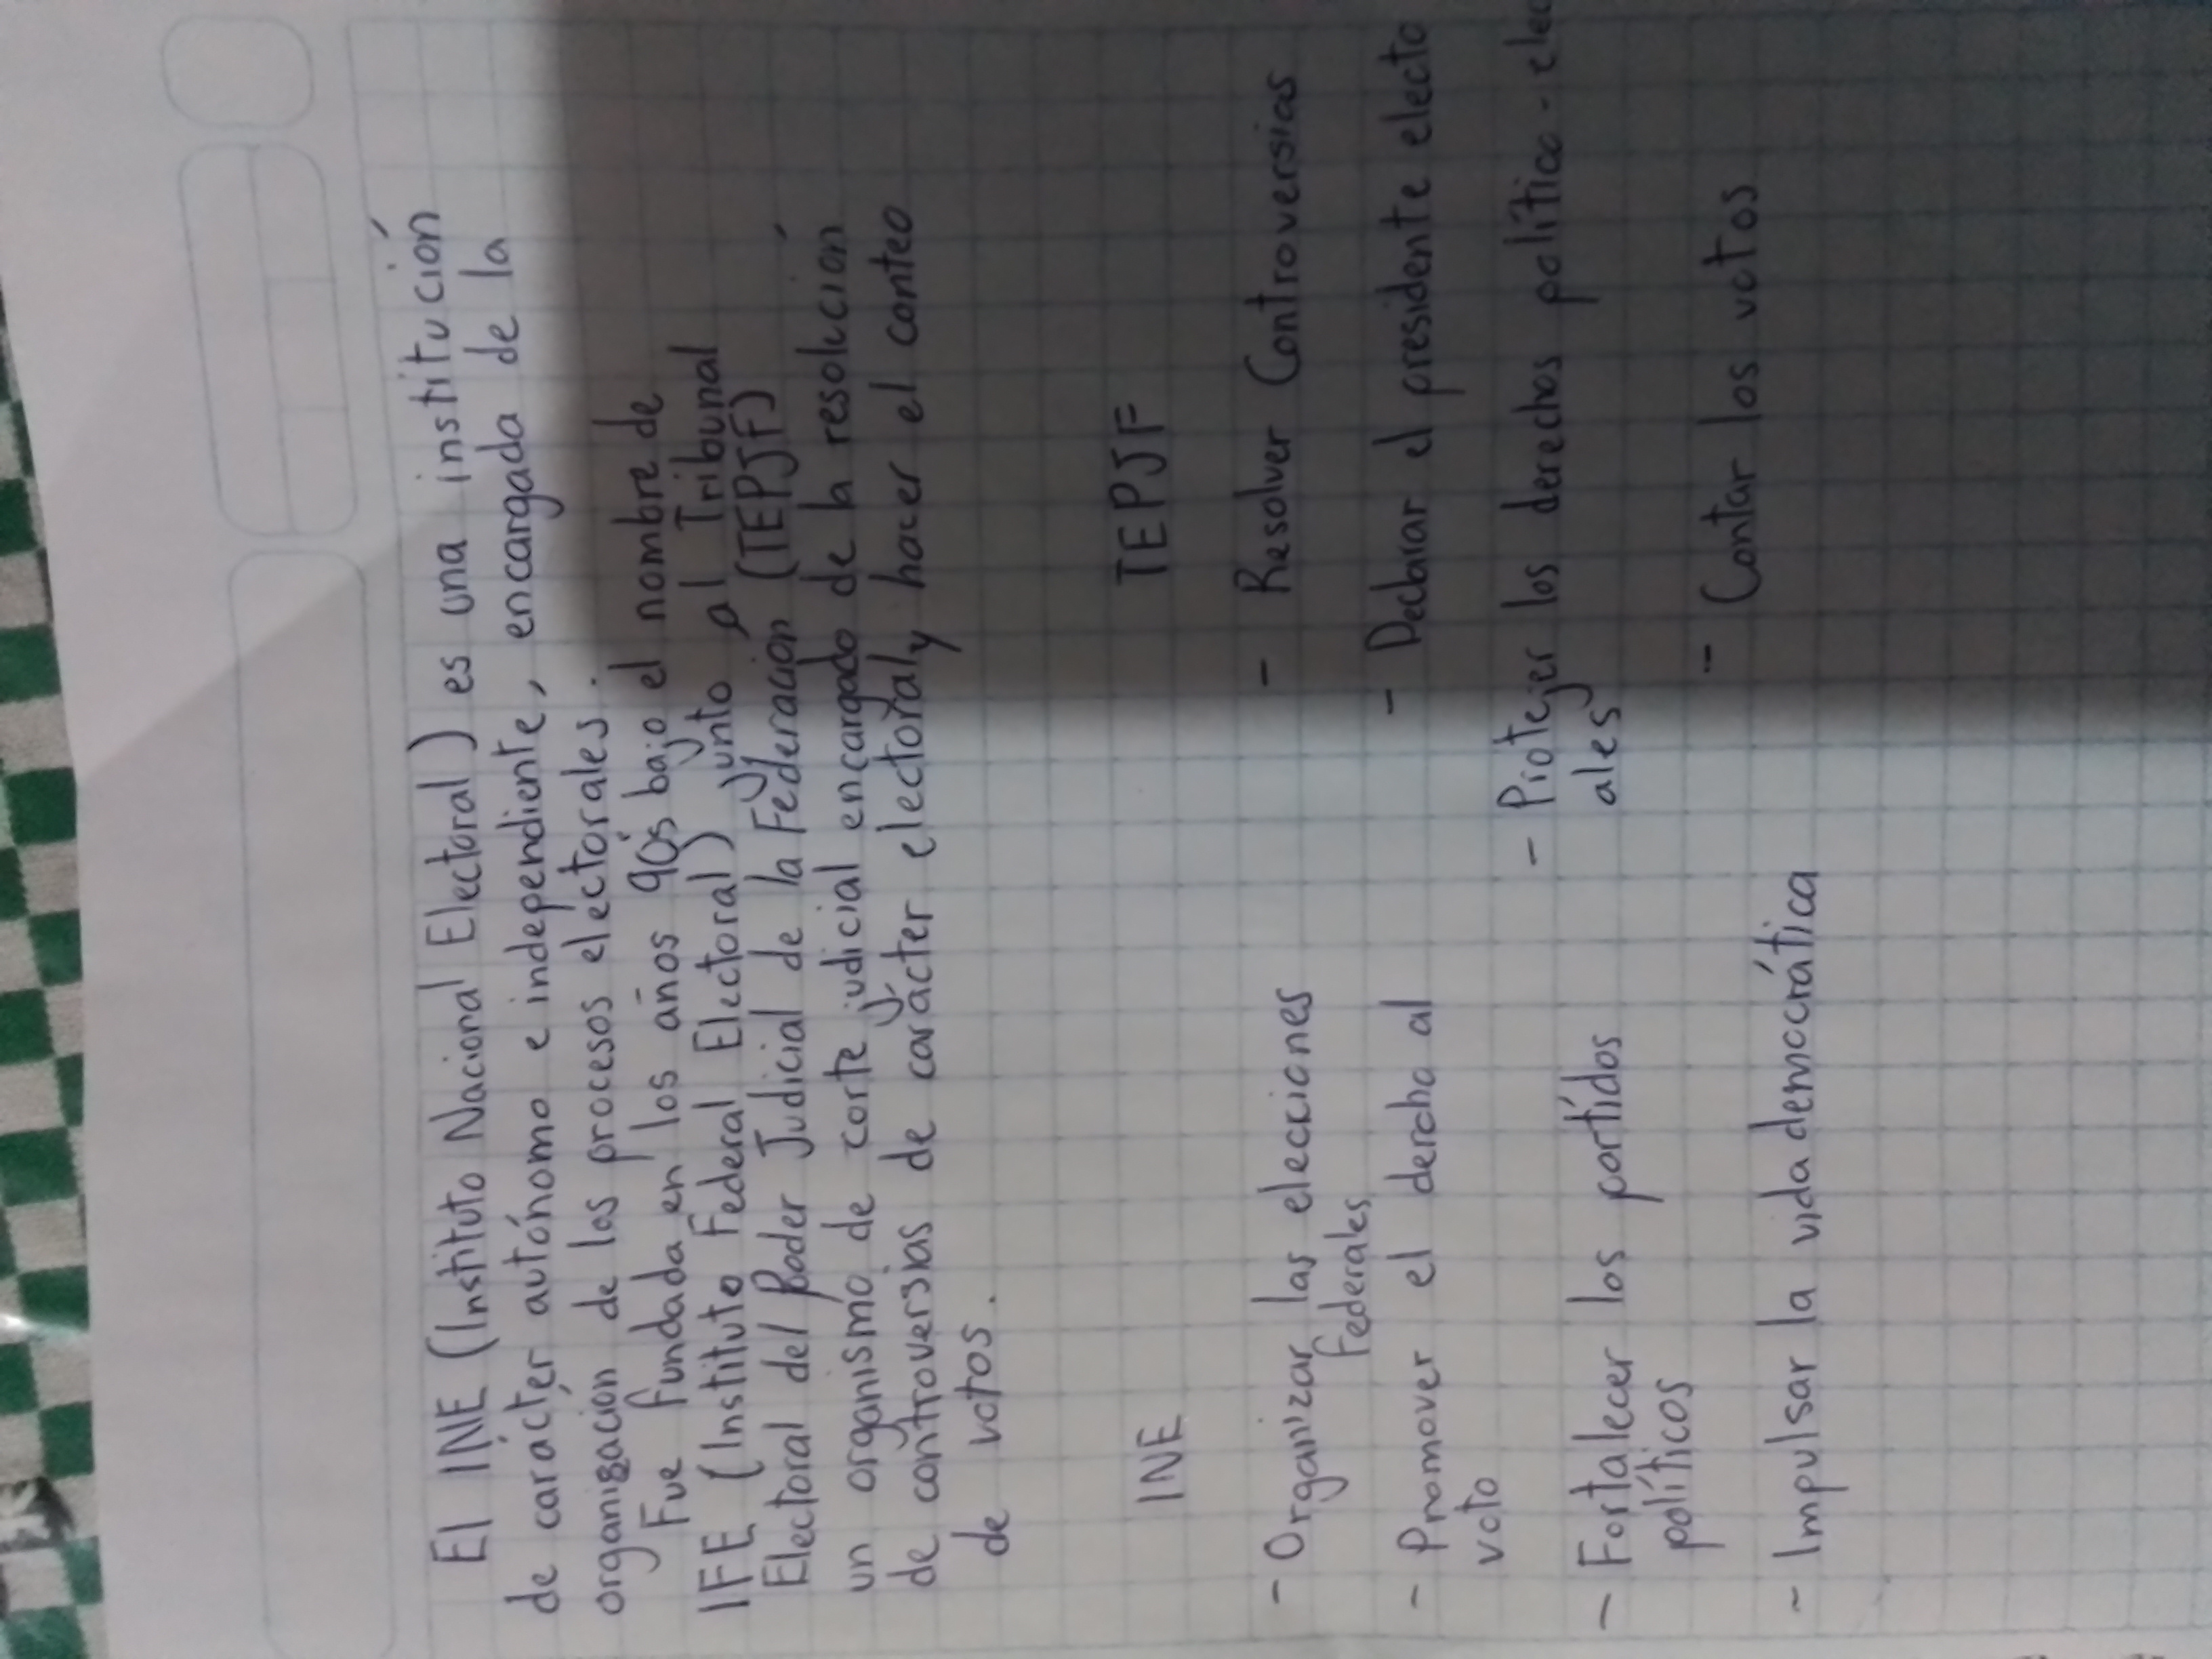 El INE (Instituto Nacional Electoral) es una institución
de carácter autónomo e independiente, encargada de la
organización de los procesos electorales.
Fue fundada en los años 90's bajo el nombre de
IFE (Instituto Federal Electoral) junto al Tribunal
Electoral del Poder Judicial de la Federación (TEPJF)
un organismo de corte judicial encargado de la resolución
de controversias de carácter electoral y hacer el conteo
de votos.
INE
- Organizar las elecciones
Federales
- Promover el dercho al
voto
- Fortalecer los partídos
políticos
- Impulsar la vida democrática
TEPJF
- Resolver Controversias
- Declarar el presidente electo
- Protejer los derechos político-elec
ales
- Contar los votos